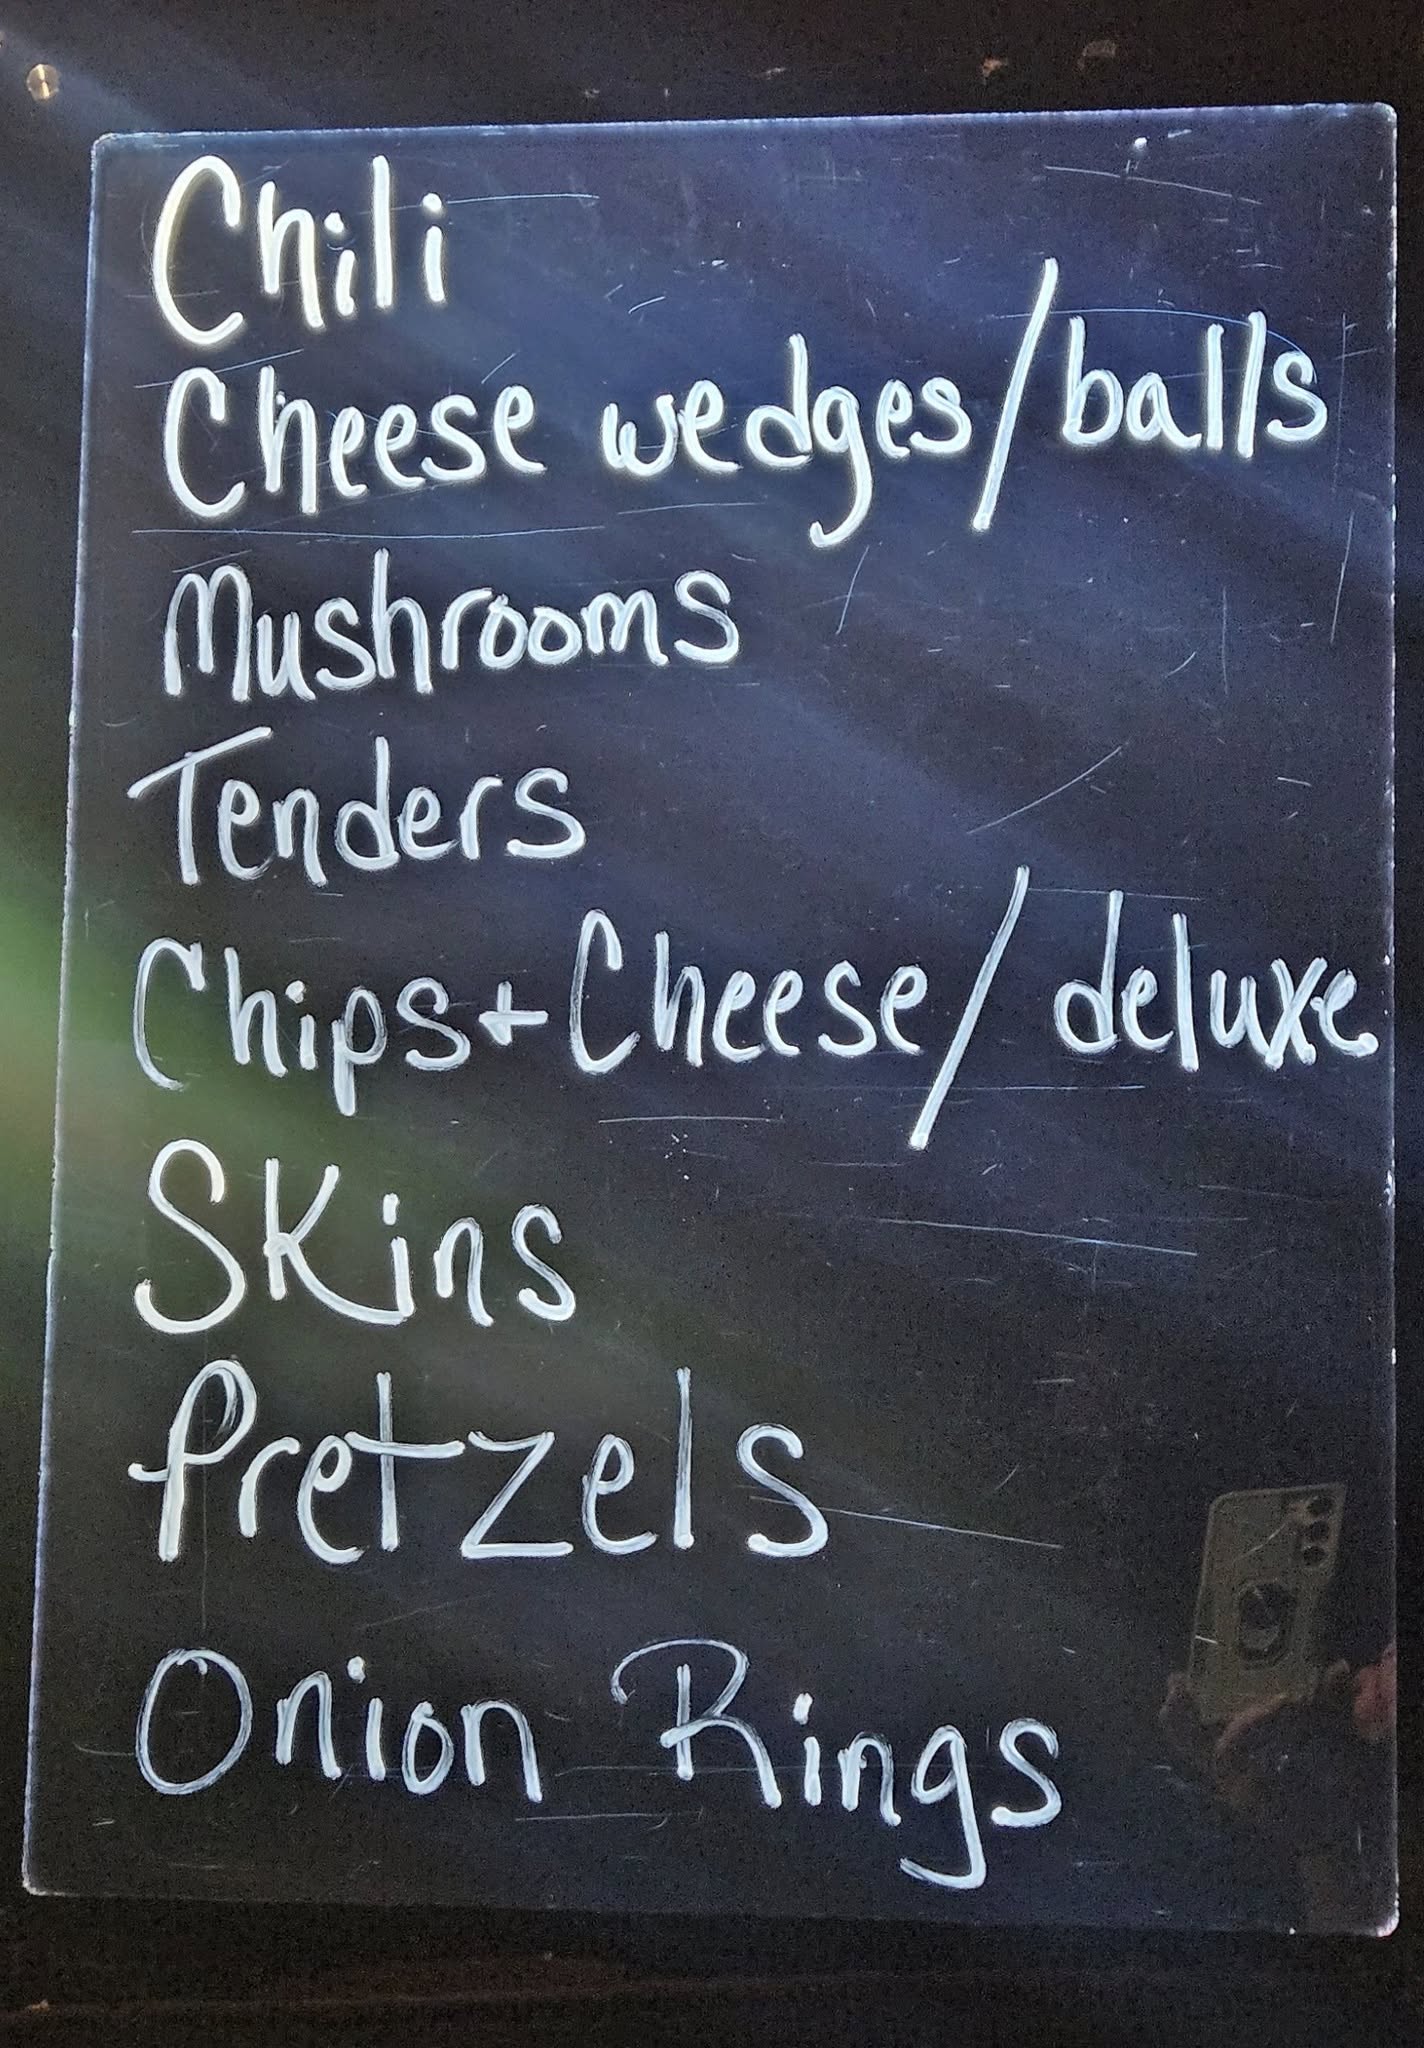 Chili
Cheese wedges/balls
Mushrooms
Tenders
Chips + Cheese/deluxe
Skins
Pretzels
Onion Rings